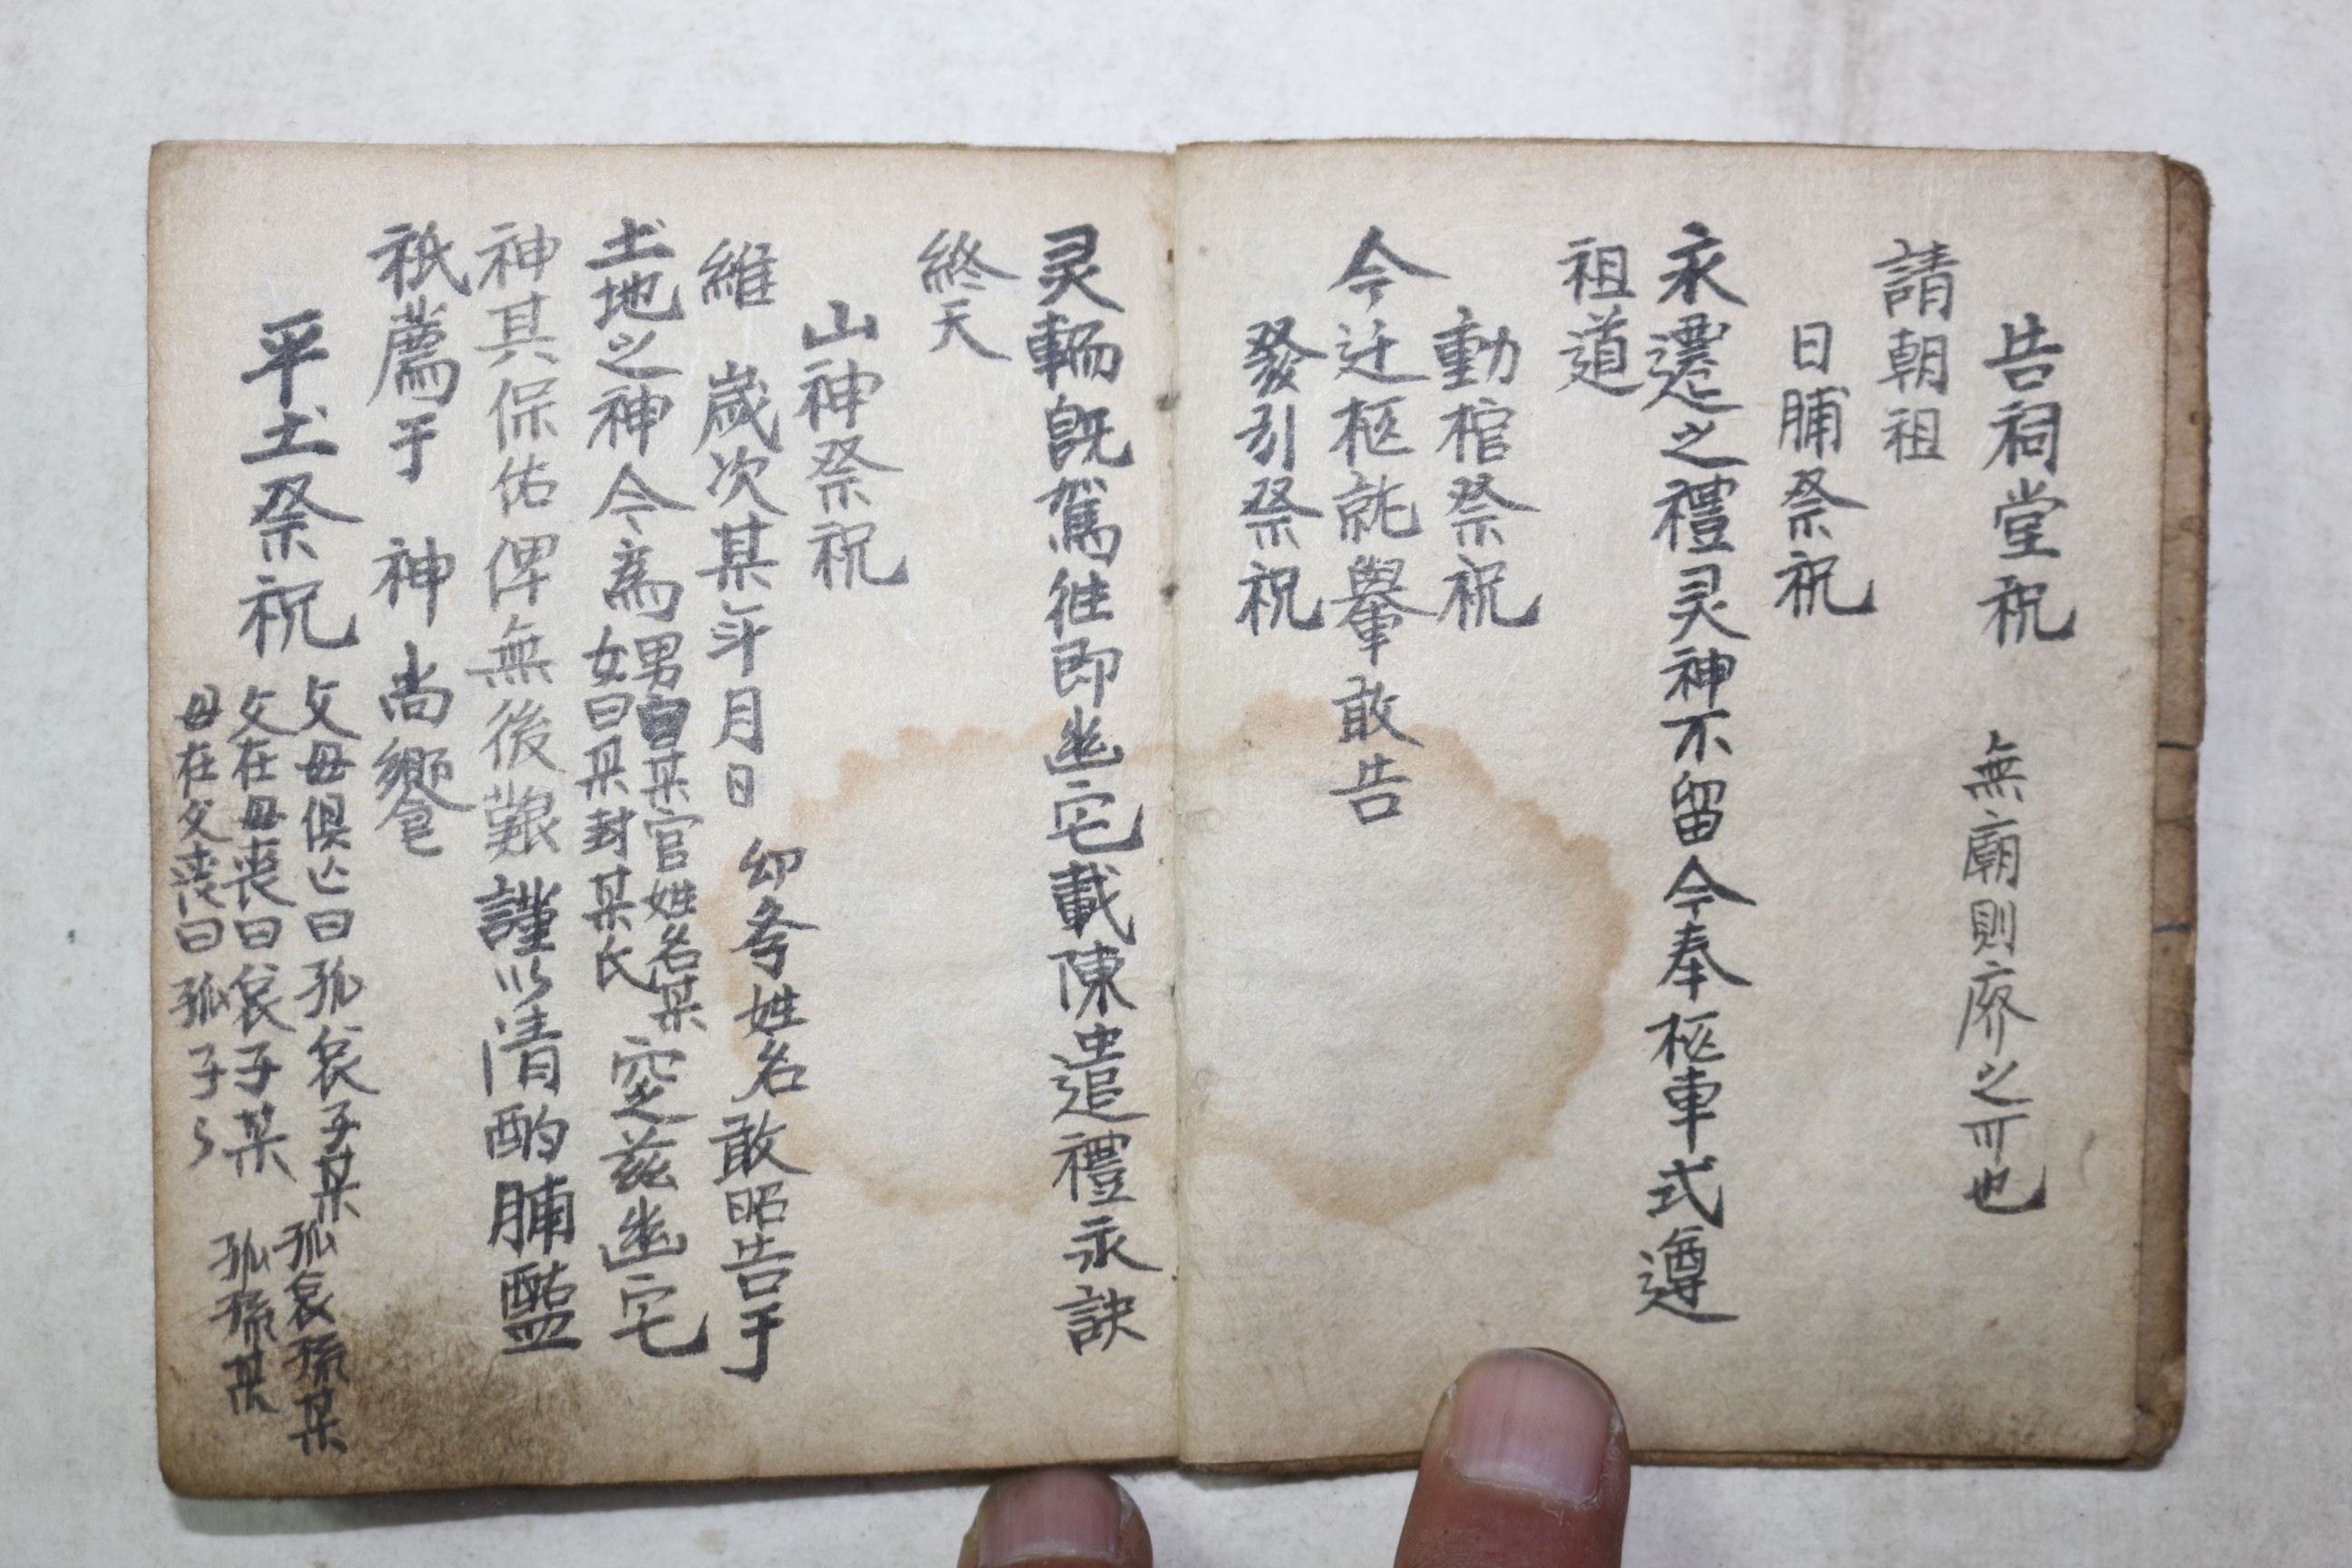 告祠堂祝 無廟則廢之可也
請朝祖
日脯祭祝
永遷之禮灵神不留今奉柩車式遵
祖道
動棺祭祝
今迁柩就轝敢告
發引祭祝
灵輀旣駕徃即幽宅載陳遣禮永訣
終天
山神祭祝
維 歲次某年月日 幼學姓名敢昭告于
土地之神今為
男曰某官姓名某
女曰某封某氏
窆茲幽宅
神其保佑俾無後艱謹以清酌脯醢
祗薦于 神尚饗
平土祭祝
父母俱亡曰孤哀子某 孤哀孫某
父在母喪曰哀子某 孤孫某
母在父喪曰孤子〻